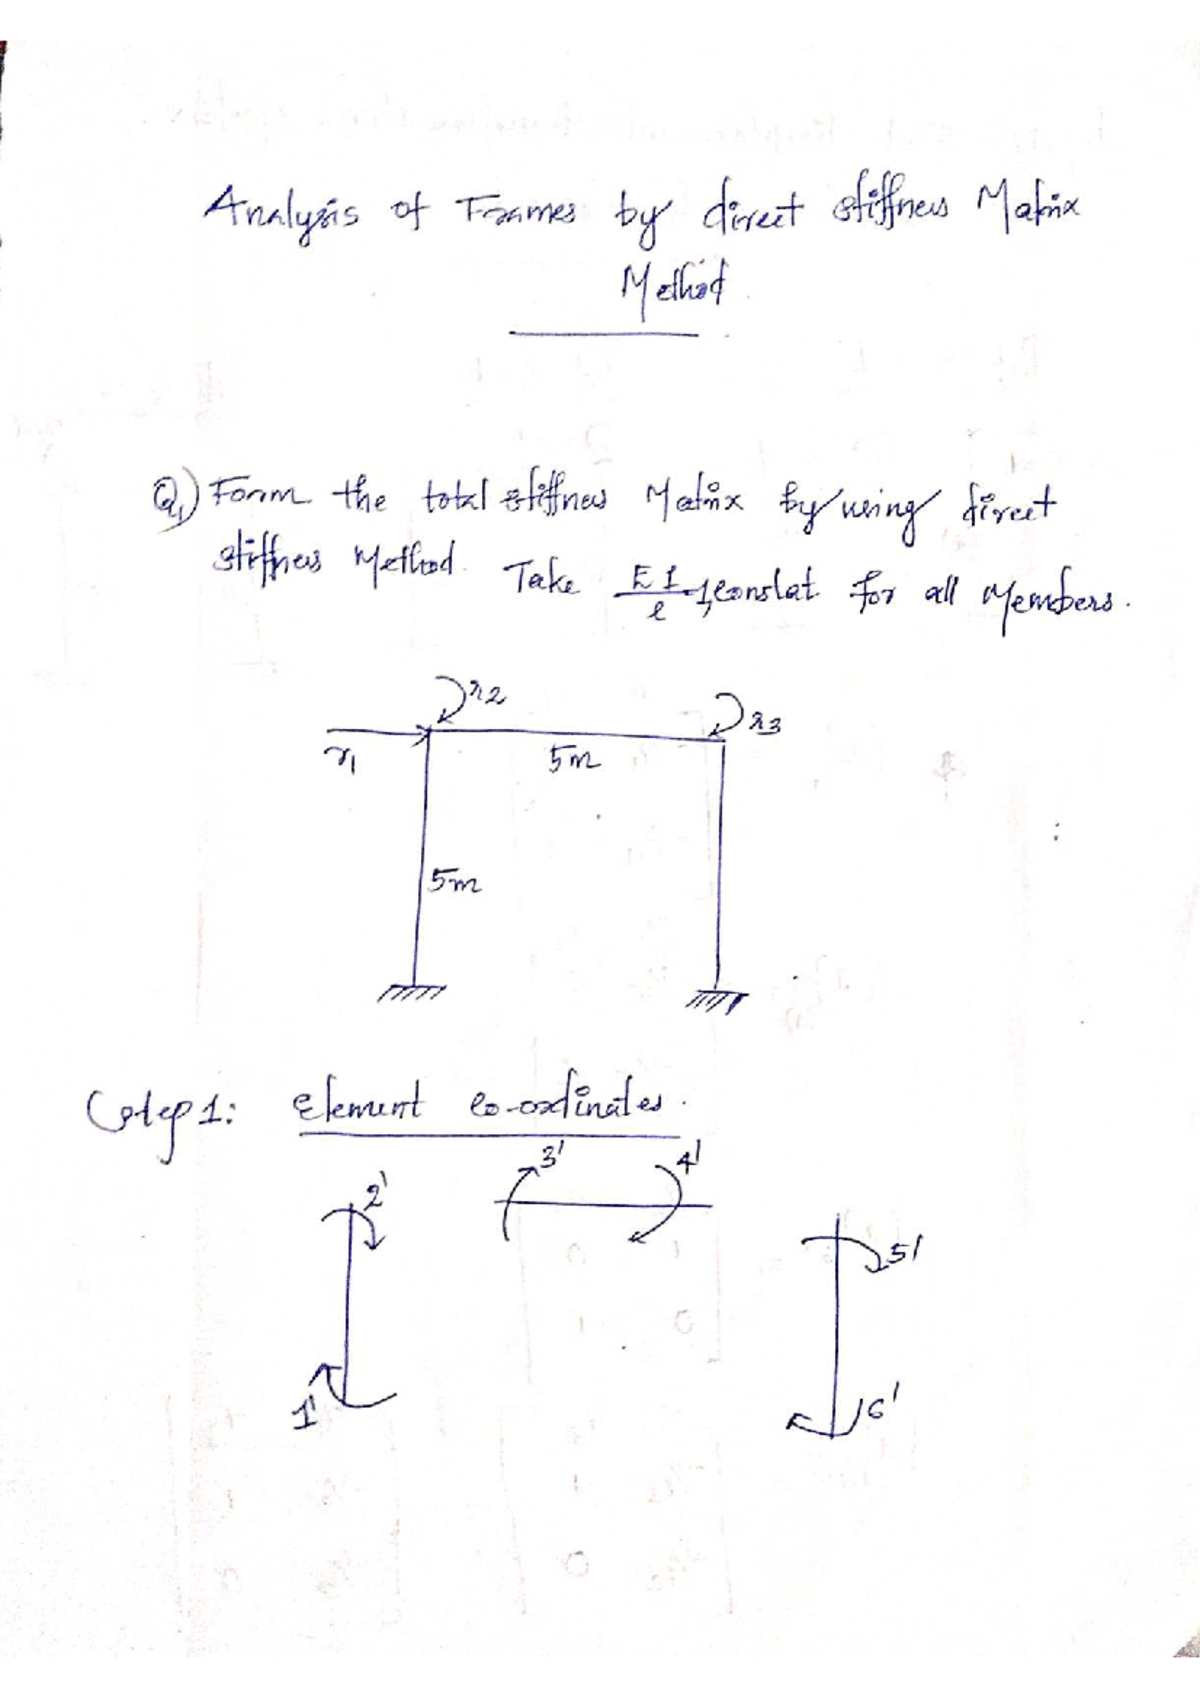 Analysis of Frames by direct stiffness Matrix
Method.
Q1) Form the total stiffness Matrix by using direct
stiffness Method. Take EI/l = 1, constat for all Members.
r2
r3
r1
5m
5m
Step 1: Element co-ordinates.
3'
4'
2'
5'
1'
6'